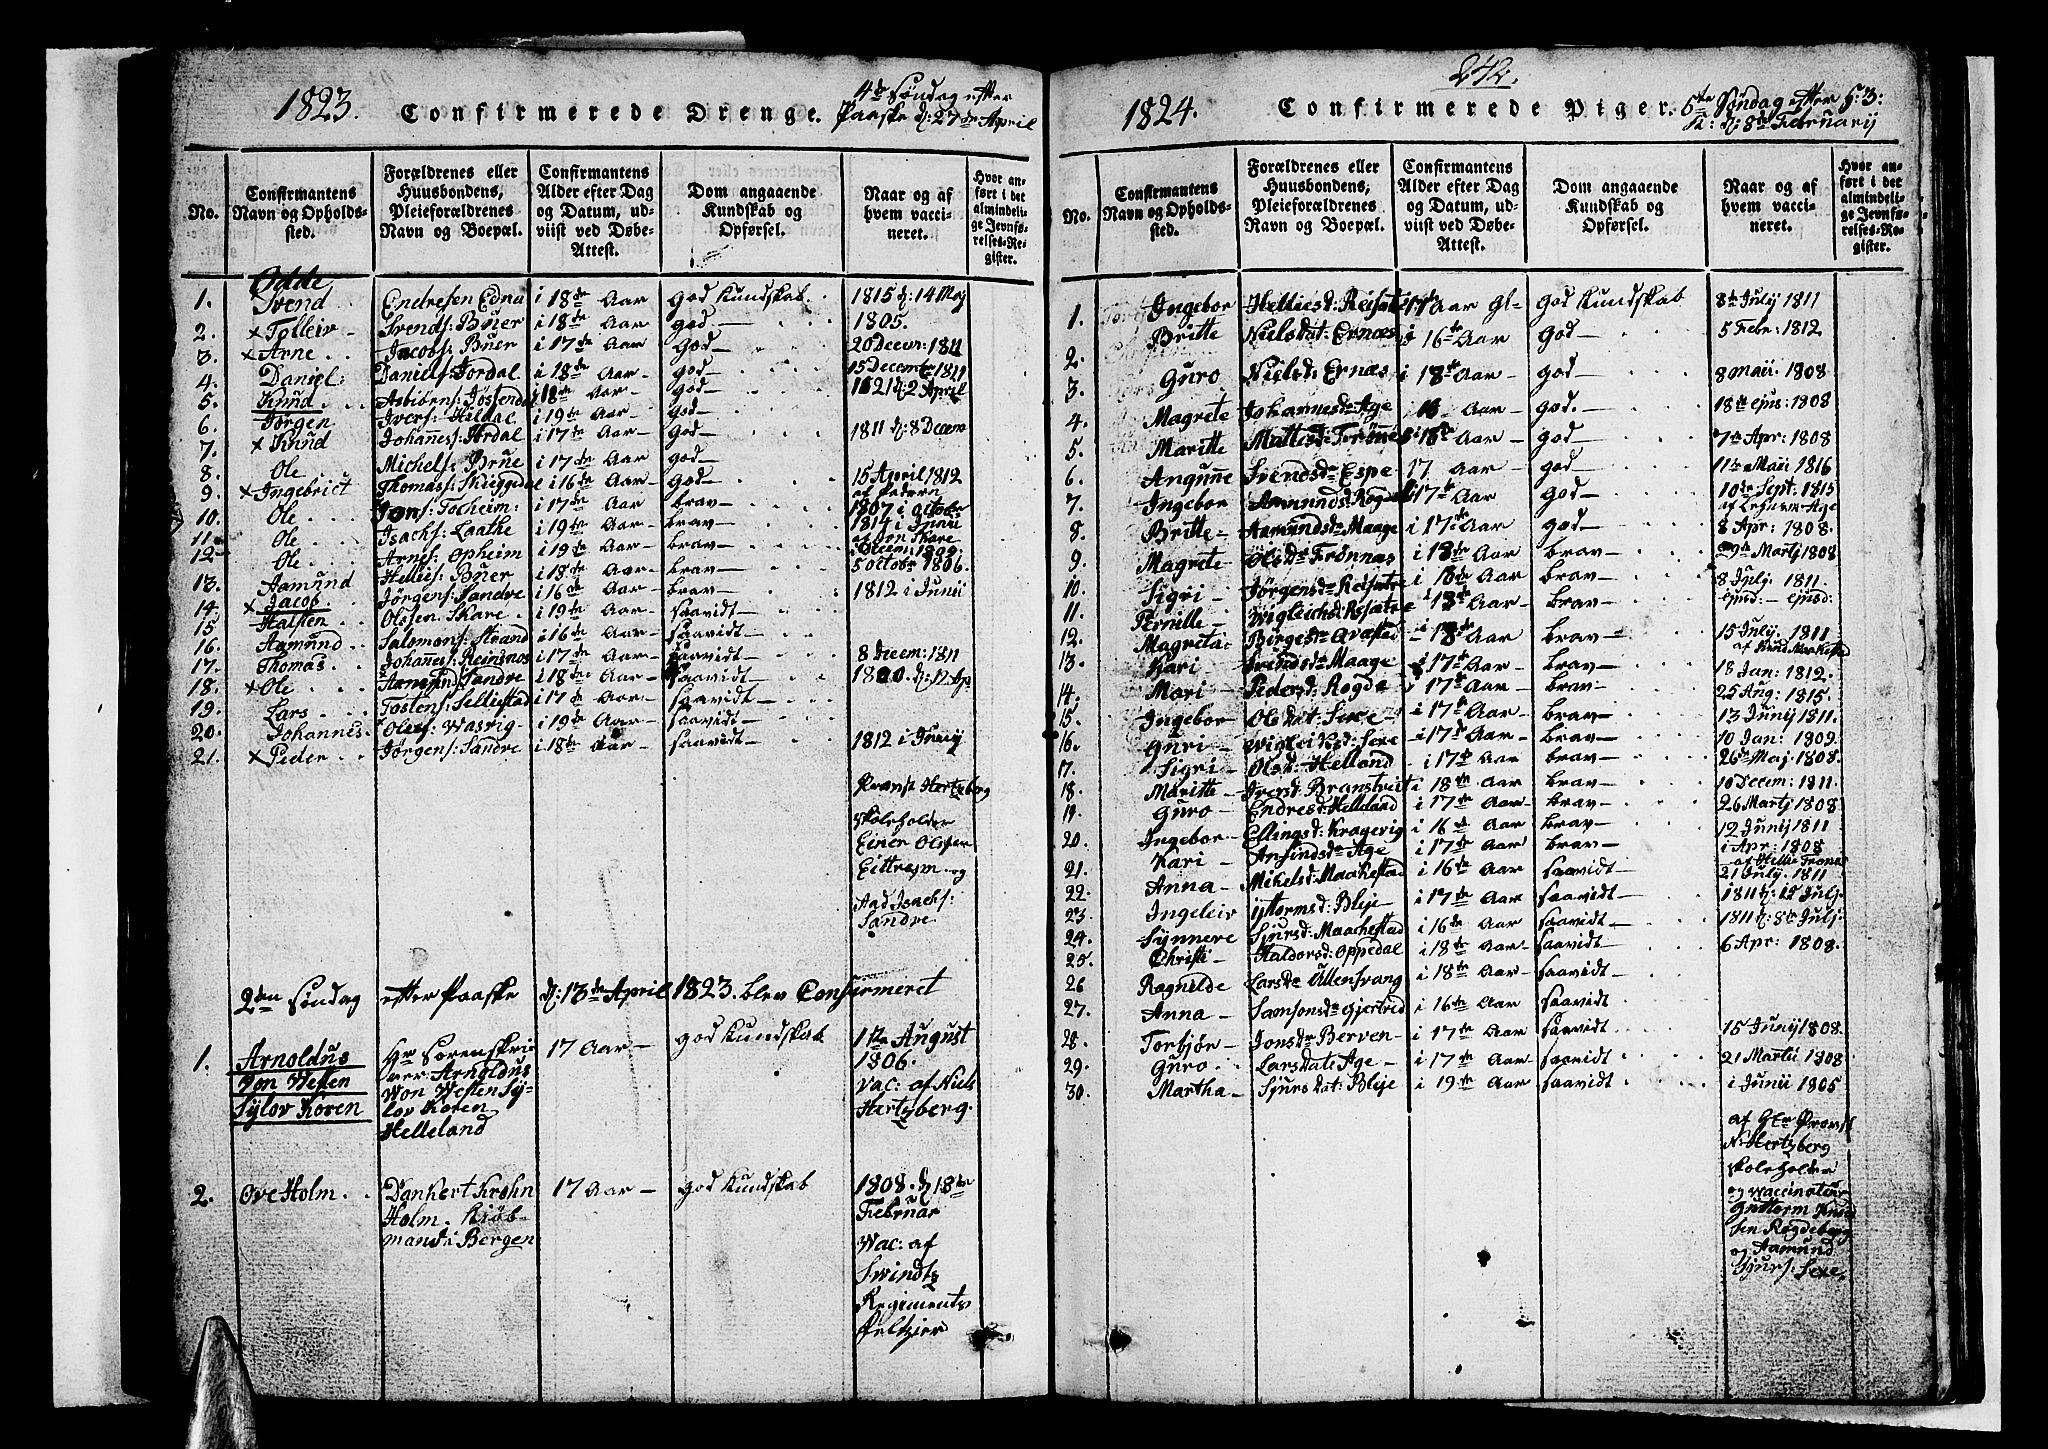 1823. Confirmerede Drenge. 4de Søndag efter
Paaske d: 27de April
No.
Confirmantens Navn og Opholdssted.
Forældrenes eller Huusbondens, Pleieforældrenes Navn og Boepæl.
Confirmantens Alder efter Dag og Datum, udviist ved Døbe-Attest.
Dom angaaende Kundskab og Opførsel.
Naar og af hvem vaccineret.
Hvor anført i det almindelige Jevnførelses-Register.
Odde
1. Svend Endresen Edna i 18de Aar god Kundskab. 1815 d: 14 Maj
2. x Tolleiv Svends: Buer i 18de Aar god 1805.
3. x Arne Jacobs: Buer i 17de Aar god 20 Decemr: 1811
4. Daniel Daniels: Jordal i 18de Aar god 15 Decembr 1811
5. Knud Asbiørns: Jøssendal i 18de Aar god 1821 d: 2 April
6. Jørgen Ivers: Hildal i 19de Aar god
7. x Knud Johannes: Hordal i 17de Aar god 1811 d: 8 Decem
8. Ole Michels: Brue i 17de Aar god
9. x Ingebrict Thomas: Skieggedal i 16de Aar god 15 April 1812
10. Ole Jons: Tocheim i 17de Aar brav 1807 i Octobr
11. Ole Isachs: Laathe i 19de Aar brav 1814 i Junii af Jon Skare
12 Ole Arnes: Opheim i 19de Aar brav i Decem: 1809.
13. Aamund Hellies: Buer i 18de Aar brav 5 Octobr 1806.
14. x Jacob Jørgens: Sandre i 16de Aar brav 1812 i Junii
15 Halsten Olssen Skare i 19de Aar saavidt
16. Aamund Salomons: Strand i 16de Aar saavidt
17. Thomas Johannes: Reinsnos i 17de Aar saavidt 8 Decem: 1811
18. x Ole Sandre i 18de Aar saavidt
19. Lars Tostens: Sellestad i 17de Aar saavidt
20. Johannes Oles: Wasvig i 19de Aar saavidt
21. x Peder Jørgens: Sandre i 18de Aar saavidt 1812 i Junij
Provst Hertzberg
Skoleholder
Einer Olssen
Eittreim og
Aad Isachs:
Sandre.
2den Søndag efter Paaske d: 13de April 1823. blev Confirmeret
1. Arnoldus Von Westen Sylov Koren
Hr Sorenskriver Arnoldus Von Westen Sylov Koren Helleland
17 Aar god Kundskab
1ste August 1806. Vac: af Niels Hertzberg.
2. Ove Holm
Dankert Krohn Holm. Kiøbmand i Bergen
17 Aar god Kundskab
1808. d: 18de Februar Vac: af Swindtz Regiments
242.
1824. Confirmerede Piger. 5te Søndag efter H: 3:
K: d: 8de Februarij
No.
Confirmantens Navn og Opholdssted.
Forældrenes eller Huusbondens, Pleieforældrenes Navn og Boepæl.
Confirmantens Alder efter Dag og Datum, udviist ved Døbe-Attest.
Dom angaaende Kundskab og Opførsel.
Naar og af hvem vaccineret.
Hvor anført i det almindelige Jevnførelses-Register.
1. Ingebor Helliesd: Reisæte 17de Aar god Kundskab 8de July 1811
2. Britte Nielsdat: Ernæs i 16de Aar god 5 Febr: 1812
3. Guro Nielsd: Ernæs i 18de Aar god 8 Maii. 1808
4. Magrete Johannesd: Age 18 Aar god. 18de ejus: 1808
5. Maritte Mattesd: Trønes i 18de Aar god 7de Apr: 1808
6. Angunne Svendsdr Espe 17 Aar god 11te Maii 1816
7. Ingebor Aamundsd: Rogde i 17de Aar god 10de Sept: 1815
8. Britte Aamundsd: Maage i 17de Aar god 8 Apr: 1808.
9. Magrete Olsdr Trønnæs i 18de Aar brav 9de Martj 1808
10. Sigri Jørgensd: Reisæte i 18de Aar brav 8 Julj: 1811.
11. Pernille Wigleichsd: Resæte i 18de Aar brav ejusd: ejusd:
12. Magreta Børgesdr Qvæstad i 18de Aar brav 15 July. 1811
af Knud Maakestad
13. Kari Svendsdr Maage i 17de Aar brav 18 Jan: 1812.
14. Mari Pedersd: Rogde i 17de Aar brav 25 Aug: 1815.
15. Ingebor Olsdat: Sexe i 17de Aar brav 13 Junij 1811.
16. Guri Wigleiksd: Sexe i 17de Aar brav 10 Jan: 1809.
17. Sigri Olsd: Helland i 17de Aar brav 26de Maj 1808.
18. Maritte Iversd: Branstveit i 18de Aar brav 10 Decem: 1811.
19. Guro Endresd: Helleland i 17de Aar brav 26 Martj 1808
20. Ingebor Ellingsd: Kragevig i 16de Aar brav 12 Junij 1811
21. Kari Arfindsdr Age i 17de Aar brav i Apr: 1808
22. Anna Mikelsd: Maakestad i 16de Aar saavidt 21 July. 1811
23. Ingeleiv Guttormsd: Bleje i 17de Aar saavidt 1811 d: 15 Julj
24. Synneve Sjursd: Maachestad i 16de Aar saavidt 1811 d: 8de Julj
25. Christi Haldorsd: Oppedal i 18de Aar saavidt 6 Apr: 1808.
26 Ragnilde Larsdr Ullensvang i 18de Aar saavidt
27. Anna Samsonsdr i 16de Aar saavidt
28. Torbjør Jonsdr Berven i 17de Aar saavidt 15 Junij 1808.
29. Guro Larsdatr Age i 17de Aar saavidt 21 Martii 1808
30. Martha Sjursdat: Bleje i 19de Aar saavidt i Junii 1805
af Hr Provst
N: Hertzberg
Skoleholder
og Vaccinateur
Guttorm Knud
sen Rogdeberg
og Aamund
Sjurs: Sexe.